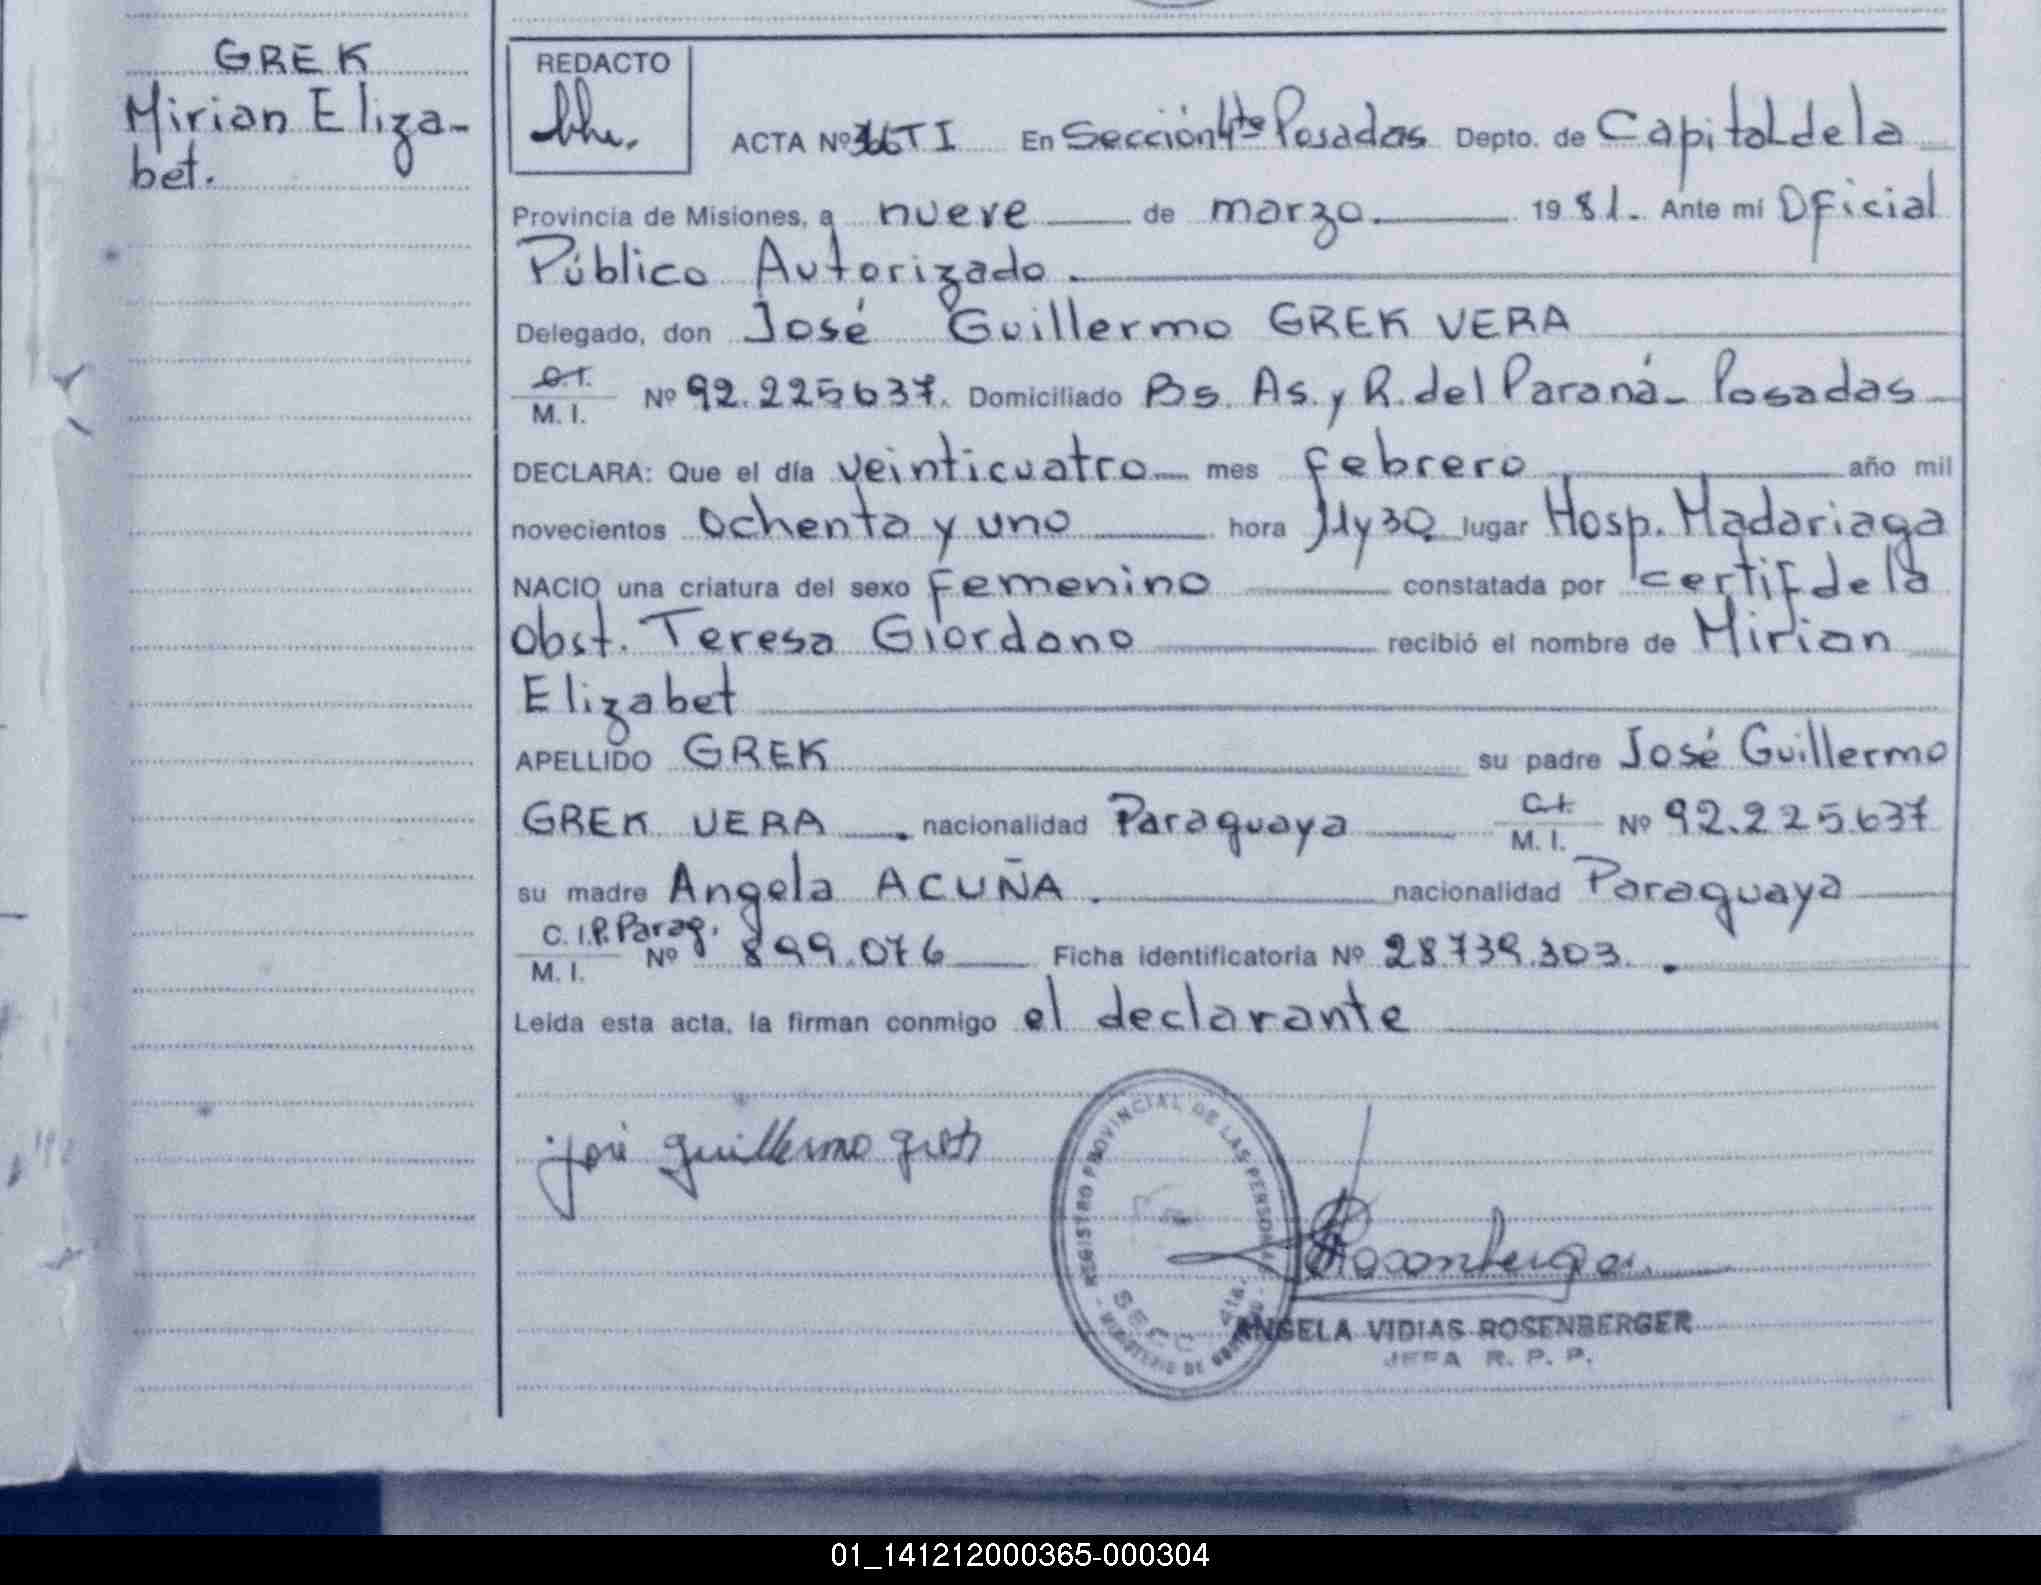 GREK
Mirian Eliza-
bet.
REDACTO
ACTA Nº 366 T I En Sección 4ta Posadas Depto. de Capital de la
Provincia de Misiones, a nueve de marzo. 1981. Ante mi Oficial
Público Autorizado.
Delegado, don José Guillermo GREK VERA
C.I.
M. I. Nº 92.225637. Domiciliado Bs. As. y R. del Paraná - Posadas
DECLARA: Que el día veinticuatro mes febrero año mil
novecientos ochenta y uno hora 11 y 30 lugar Hosp. Madariaga
NACIO una criatura del sexo femenino constatada por certif de la
Obst. Teresa Giordano recibió el nombre de Mirian
Elizabet
APELLIDO GREK su padre José Guillermo
GREK VERA. nacionalidad Paraguaya C.I. M. I. Nº 92.225.637
su madre Angela ACUÑA. nacionalidad Paraguaya
C. I.P. Parag.
M. I. Nº 899.076 Ficha identificatoria Nº 28.739.303.
Leida esta acta, la firman conmigo el declarante
José Guillermo Grek
REGISTRO PROVINCIAL DE LAS PERSONAS
SECC. 4ta.
MINISTERIO DE GOBIERNO
Rosenberger
ANGELA VIDIAS ROSENBERGER
JEFA R. P. P.
01_141212000365-000304